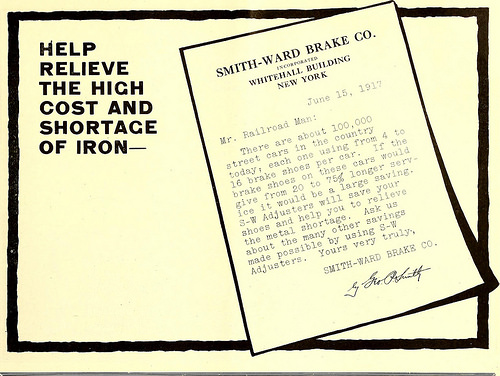 HELP
RELIEVE
THE HIGH
COST AND
SHORTAGE
OF IRON—
SMITH-WARD BRAKE CO.
INCORPORATED
WHITEHALL BUILDING
NEW YORK
June 15, 1917
Mr. Railroad Man:
There are about 100,000
street cars in the country
today, each one using from 4 to
16 brake shoes per car. If the
brake shoes on these cars would
give from 20 to 75% longer serv-
ice it would be a large saving.
S-W Adjusters will save your
shoes and help you to relieve
the metal shortage. Ask us
about the many other savings
made possible by using S-W
Adjusters. Yours very truly,
SMITH-WARD BRAKE CO.